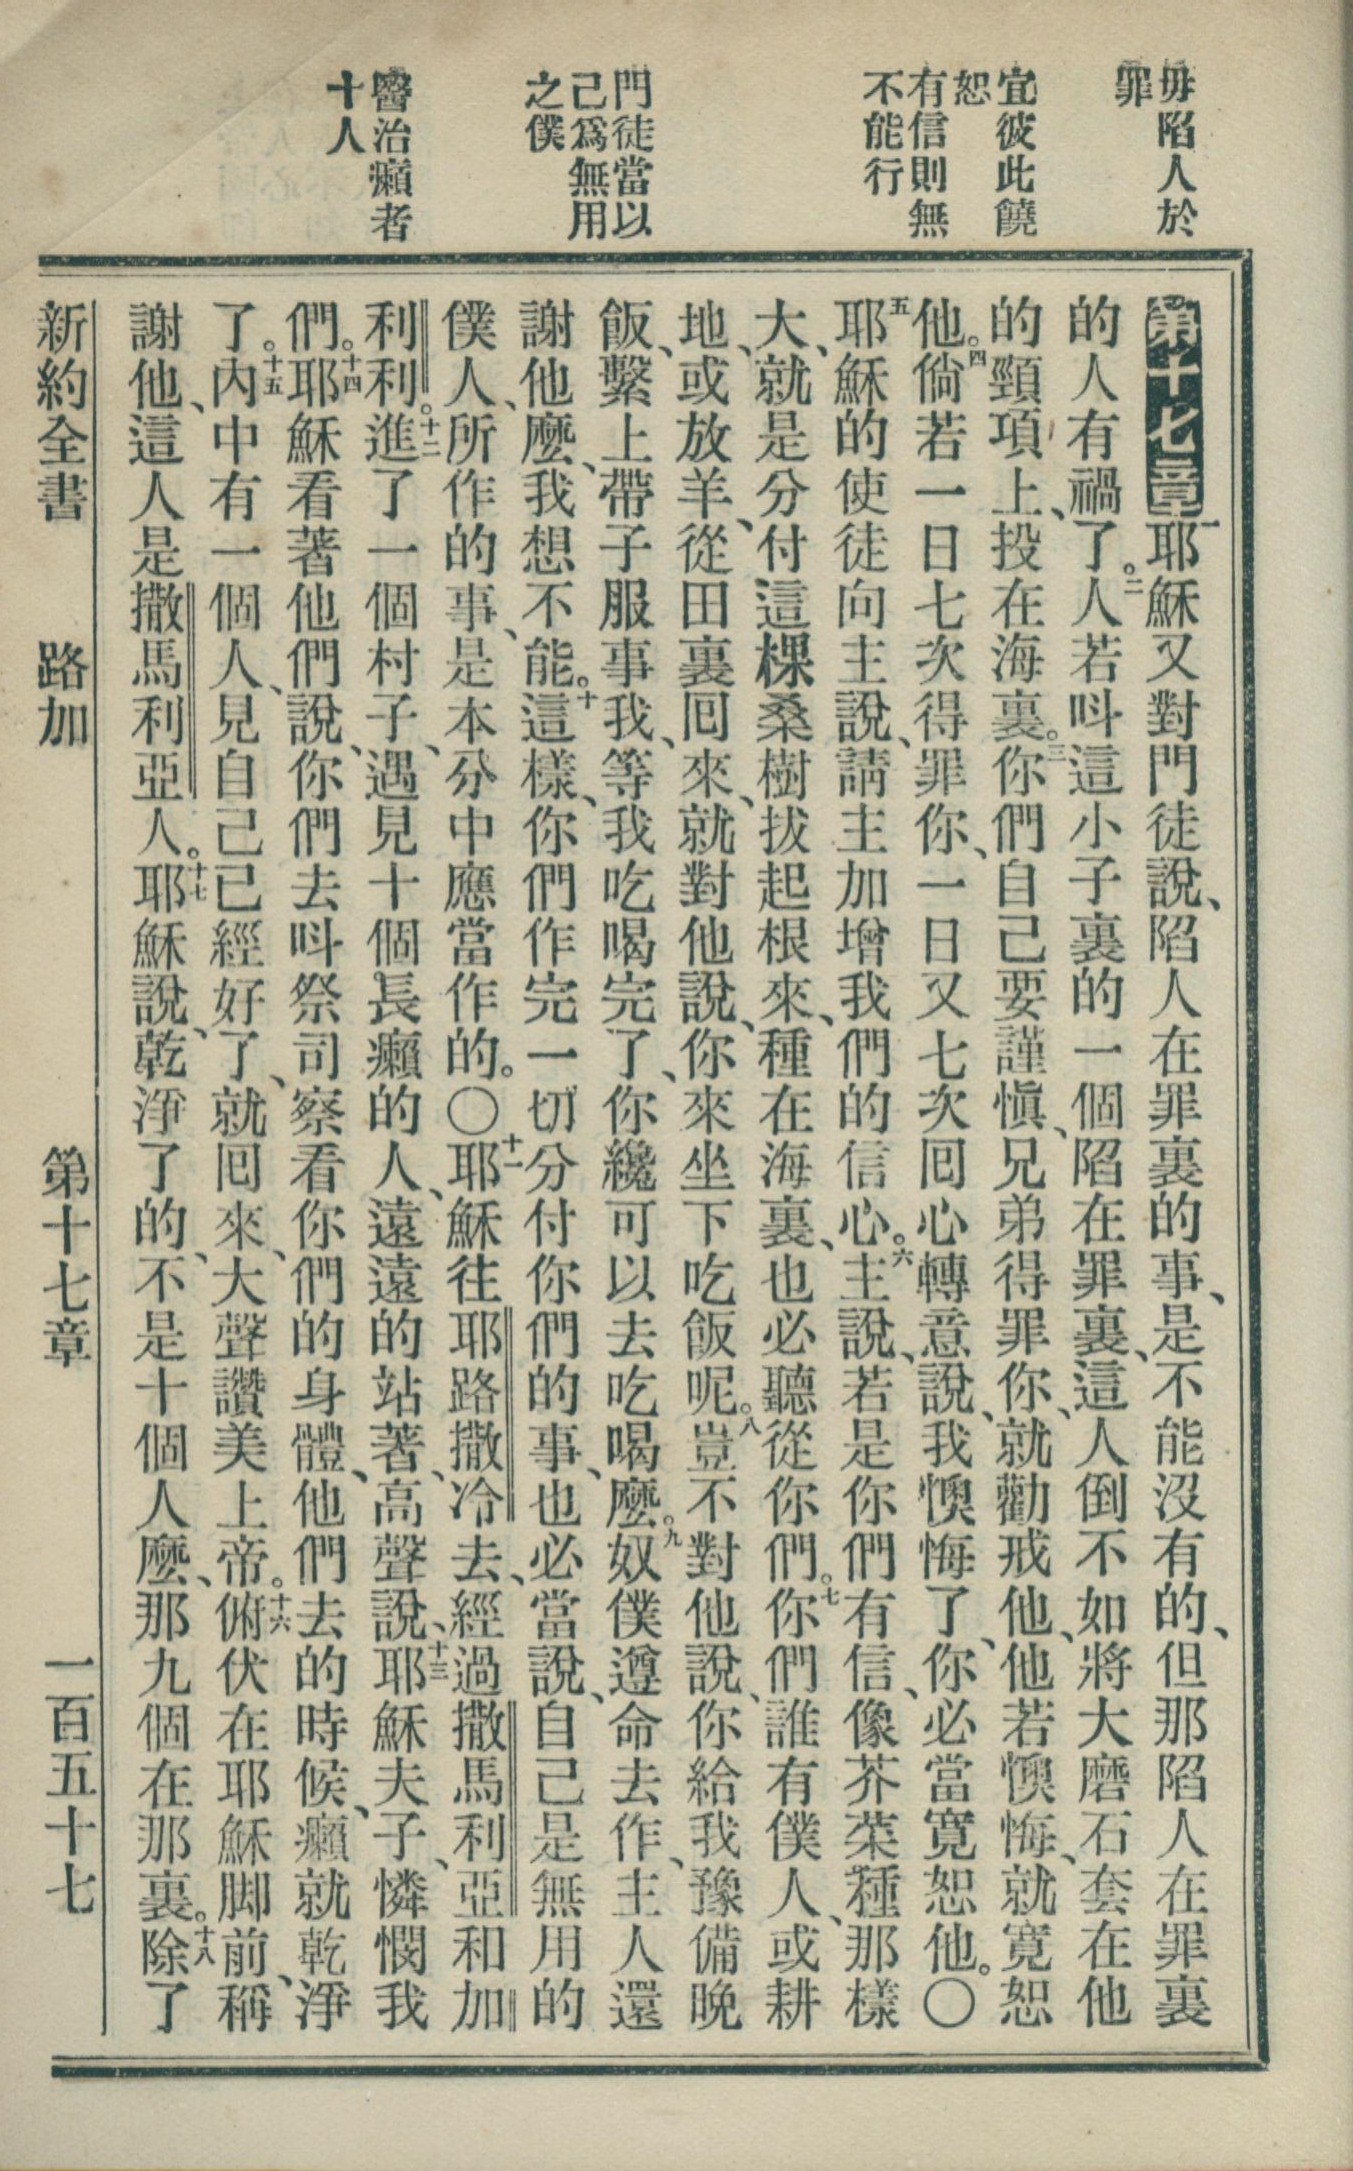 毋陷人於
罪
宜彼此饒
恕
有信則無
不能行
門徒當以
己爲無用
之僕
醫治癩者
十人
第十七章一耶穌又對門徒說、陷人在罪裏的事、是不能沒有的、但那陷人在罪裏
的人有禍了。二人若呌這小子裏的一個陷在罪裏、這人倒不如將大磨石套在他
的頸項上、投在海裏。三你們自己要謹愼、兄弟得罪你、就勸戒他、他若懊悔、就寬恕
他。四倘若一日七次得罪你、一日又七次囘心轉意說、我懊悔了、你必當寬恕他。〇
五耶穌的使徒向主說、請主加增我們的信心。六主說、若是你們有信、像芥菜種那樣
大、就是分付這棵桑樹拔起根來、種在海裏、也必聽從你們。七你們誰有僕人、或耕
地、或放羊、從田裏囘來、就對他說、你來坐下吃飯呢。八豈不對他說、你給我豫備晚
飯、繫上帶子服事我、等我吃喝完了、你纔可以去吃喝麼。九奴僕遵命去作、主人還
謝他麼、我想不能。十這樣、你們作完一切分付你們的事、也必當說、自己是無用的
僕人、所作的事、是本分中應當作的。〇十一耶穌往耶路撒冷去、經過撒馬利亞和加
利利。十二進了一個村子、遇見十個長癩的人、遠遠的站著、高聲說、十三耶穌夫子、憐憫我
們。十四耶穌看著他們說、你們去呌祭司察看你們的身體、他們去的時候、癩就乾淨
了。十五內中有一個人、見自己已經好了、就囘來、大聲讚美上帝。十六俯伏在耶穌脚前、稱
謝他、這人是撒馬利亞人。十七耶穌說、乾淨了的、不是十個人麼、那九個在那裏。十八除了
新約全書 路加 第十七章 一百五十七